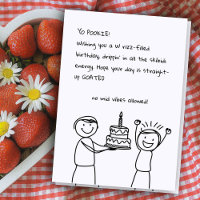 Yo POOKIE!
Wishing you a W rizz-filled
birthday, drippin' in all the Skibidi
energy. Hope your day is straight-
up GOATED
no mid vibes allowed!